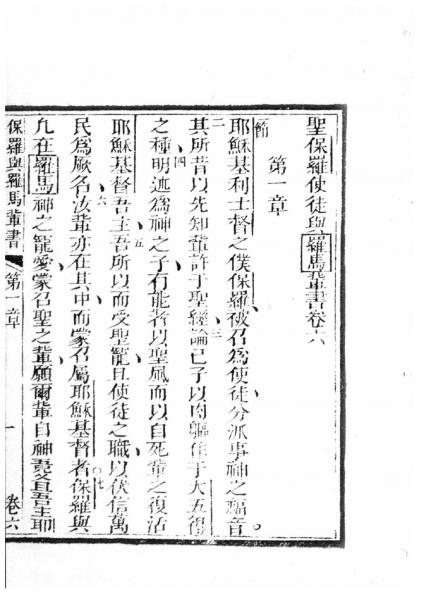 聖保羅使徒與羅馬輩書卷六
第一章
節 耶穌基利士督之僕保羅被召為使徒分派事神之福音
二 其所昔以先知輩許于聖經論己子以肉軀作于大五得 三
之種明迹為神之子有能者以聖風而以自死輩之復活 四
耶穌基督吾主吾所以而受聖寵且使徒之職以伏信萬 五
民為厥名汝輩亦在其中而蒙召屬耶穌基督者保羅與 六 七
凡在羅馬神之寵愛蒙召聖之輩願爾輩自神
父且吾主耶
保羅與羅馬輩書 第一章 一 卷六